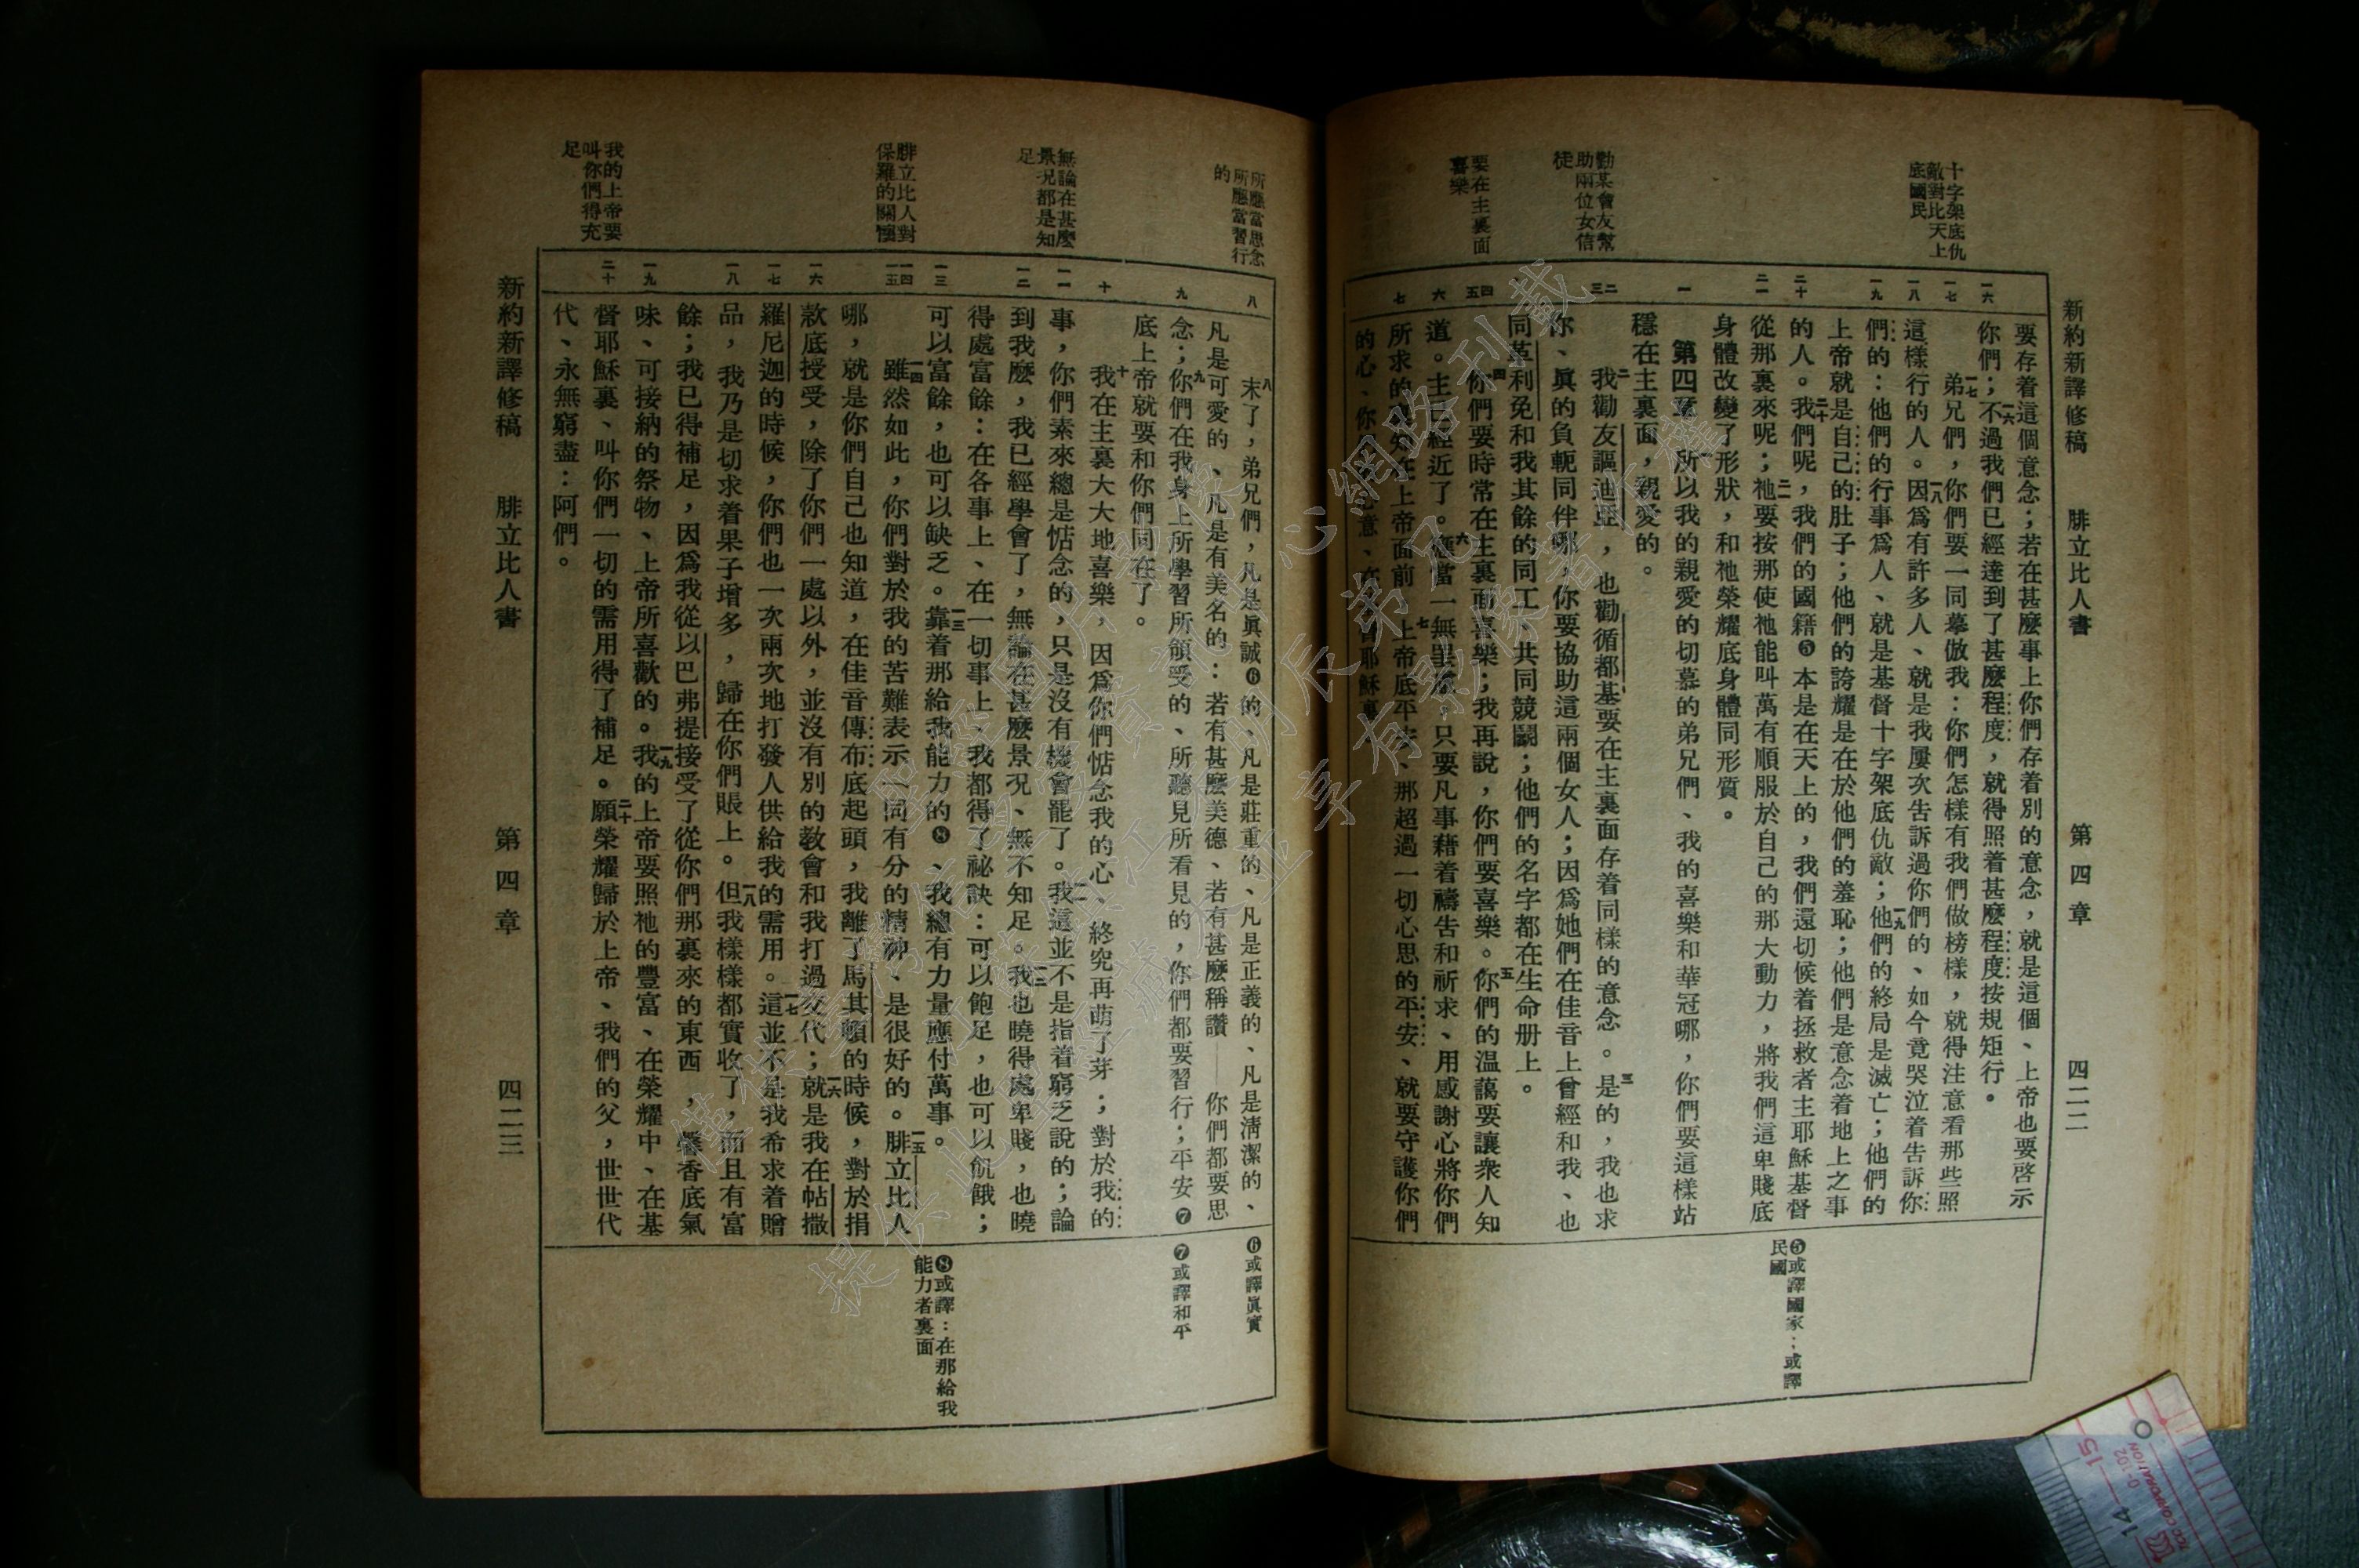 新約新譯修稿 腓立比人書 第四章 四二二
十字架底仇
敵對比天上
底國民
勸某會友幫
助兩位女信
徒
要在主裏面
喜樂
一六
一七
一八
一九
二十
二一
一
二
三
四
五
六
七
要存着這個意念;若在甚麼事上你們存着別的意念,就是這個、上帝也要啓示
你們;一六不過我們已經達到了甚麼程度,就得照着甚麼程度按規矩行。
一七弟兄們,你們要一同摹倣我:你們怎樣有我們做榜樣,就得注意看那些照
這樣行的人。一八因爲有許多人、就是我屢次告訴過你們的、如今竟哭泣着告訴你
們的:他們的行事爲人、就是基督十字架底仇敵;一九他們的終局是滅亡;他們的
上帝就是自己的肚子;他們的誇耀是在於他們的羞恥;他們是意念着地上之事
的人。二十我們呢,我們的國籍❺本是在天上的,我們還切候着拯救者主耶穌基督
從那裏來呢;二一祂要按那使祂能叫萬有順服於自己的那大動力,將我們這卑賤底
身體改變了形狀,和祂榮耀底身體同形質。
第四章 一所以我的親愛的切慕的弟兄們、我的喜樂和華冠哪,你們要這樣站
穩在主裏面,親愛的。
二我勸友謳迪亞,也勸循都基要在主裏面存着同樣的意念。三是的,我也求
你、眞的負軛同伴哪,你要協助這兩個女人;因爲她們在佳音上曾經和我、也
同革利免和我其餘的同工、共同競鬭;他們的名字都在生命册上。
四你們要時常在主裏面喜樂;我再說,你們要喜樂。五你們的温藹要讓衆人知
道。主已經近了。六應當一無罣慮,只要凡事藉着禱告和祈求、用感謝心將你們
所求的告知在上帝面前,七上帝底平安、那超過一切心思的平安、就要守護你們
的心、你們的意、在基督耶穌裏。
❺或譯國家;或譯
民國
所應當思念
所應當習行
的
無論在甚麼
景況都是知
足
腓立比人對
保羅的關懷
我的上帝要
叫你們得充
足
八
九
十
一一
一二
一三
一四
一五
一六
一七
一八
一九
二十
八末了,弟兄們,凡是眞誠❻的、凡是莊重的、凡是正義的、凡是淸潔的、
凡是可愛的、凡是有美名的:若有甚麼美德、若有甚麼稱讚——你們都要思
念;九你們在我身上所學習所領受的、所聽見所看見的,你們都要習行;平安❼
底上帝就要和你們同在了。
十我在主裏大大地喜樂,因爲你們惦念我的心、終究再萌了芽;對於我的
事,你們素來總是惦念的,只是沒有機會罷了。一一我這並不是指着窮乏說的;論
到我麼,我已經學會了,無論在甚麼景況、無不知足。一二我也曉得處卑賤,也曉
得處富餘:在各事上、在一切事上、我都得了祕訣:可以飽足,也可以飢餓;
可以富餘,也可以缺乏。一三靠着那給我能力的❽、我總有力量應付萬事。
一四雖然如此,你們對於我的苦難表示一同有分的精神、是很好的。一五腓立比人
哪,就是你們自己也知道,在佳音傳布底起頭,我離了馬其頓的時候,對於捐
款底授受,除了你們一處以外,並沒有別的教會和我打過交代;一六就是我在帖撒
羅尼迦的時候,你們也一次兩次地打發人供給我的需用。一七這並不是我希求着贈
品,我乃是切求着果子增多,歸在你們賬上。一八但我樣樣都實收了,而且有富
餘;我已得補足,因爲我從以巴弗提接受了從你們那裏來的東西,馨香底氣
味、可接納的祭物、上帝所喜歡的。一九我的上帝要照祂的豐富、在榮耀中、在基
督耶穌裏、叫你們一切的需用得了補足。二十願榮耀歸於上帝、我們的父,世世代
代、永無窮盡:阿們。
❻或譯眞實
❼或譯和平
❽或譯:在那給我
能力者裏面
新約新譯修稿 腓立比人書 第四章 四二三
15
14